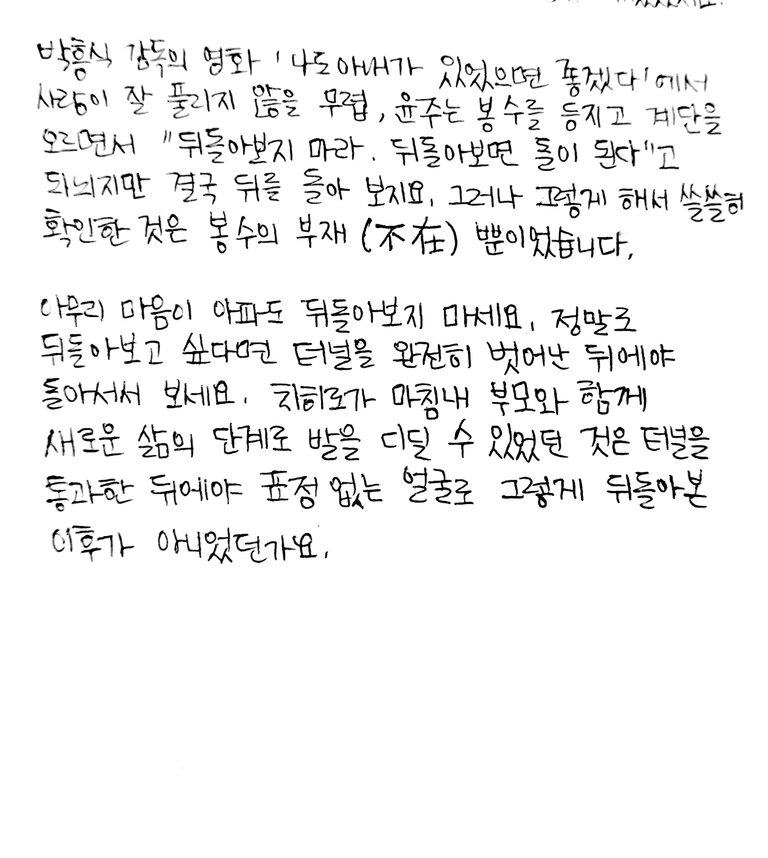 박흥식 감독의 영화 '나도아내가 있었으면 좋겠다'에서
사랑이 잘 풀리지 않을 무렵, 윤주는 봉수를 등지고 계단을
오르면서 "뒤돌아보지 마라. 뒤돌아보면 돌이 된다"고
되뇌지만 결국 뒤를 돌아 보지요. 그러나 그렇게 해서 쓸쓸히
확인한 것은 봉수의 부재(不在) 뿐이었습니다.
아무리 마음이 아파도 뒤돌아보지 마세요. 정말로
뒤돌아보고 싶다면 터널을 완전히 벗어난 뒤에야
돌아서서 보세요. 치히로가 마침내 부모와 함께
새로운 삶의 단계로 발을 디딜 수 있었던 것은 터널을
통과한 뒤에야 표정 없는 얼굴로 그렇게 뒤돌아본
이후가 아니었던가요.